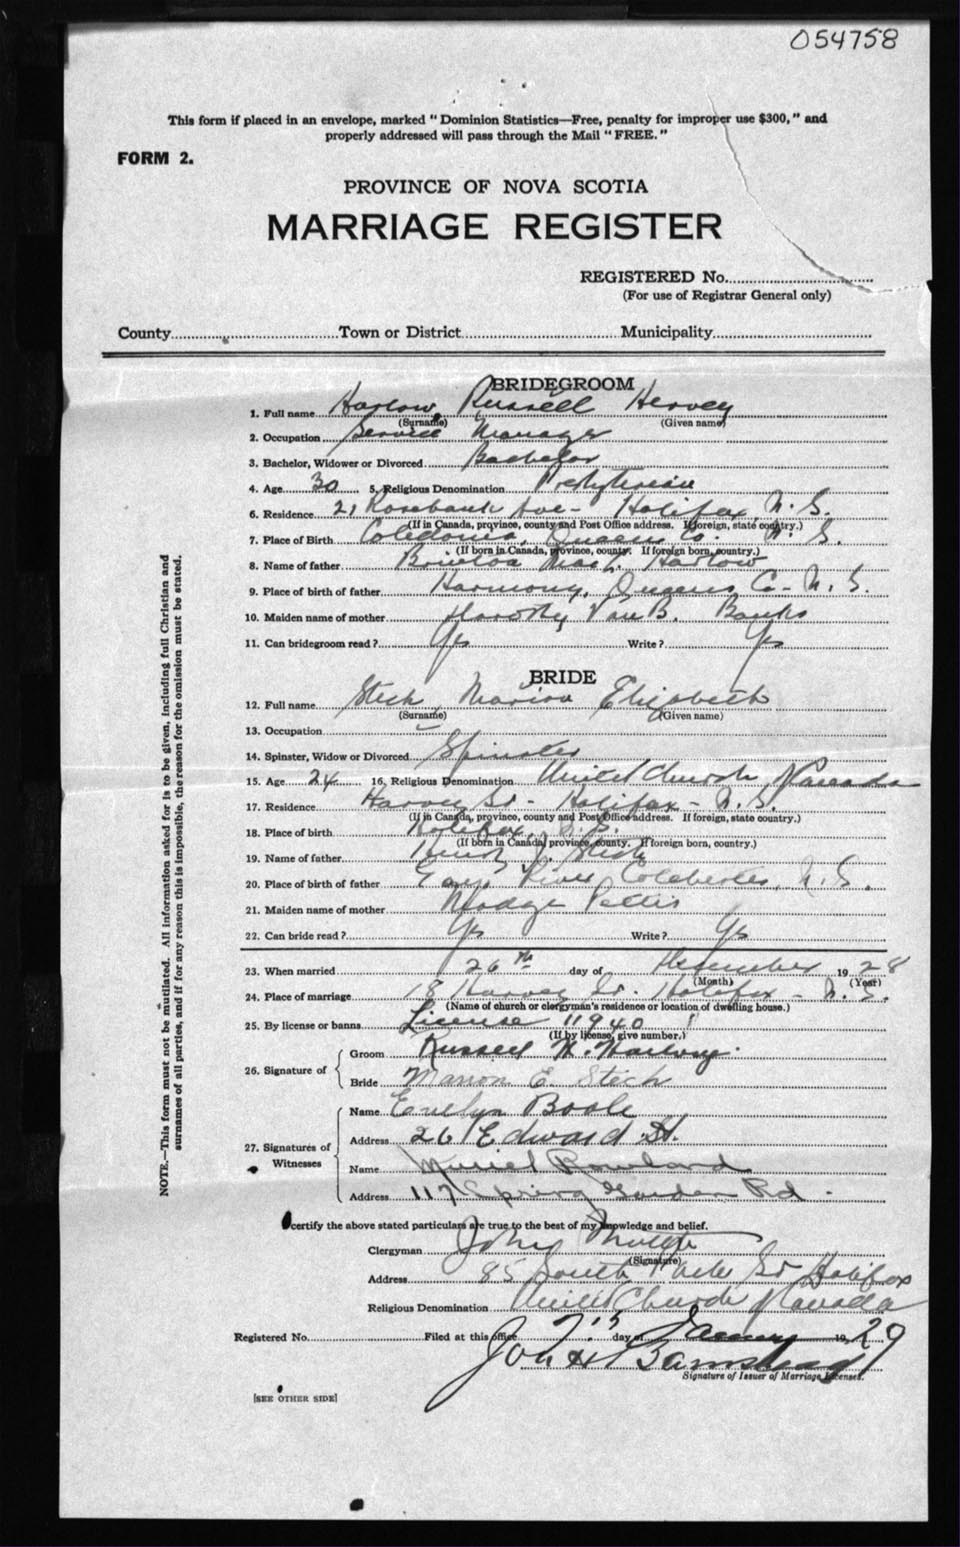 054758
This form if placed in an envelope, marked "Dominion Statistics—Free, penalty for improper use $300," and
properly addressed will pass through the Mail "FREE."
FORM 2.
PROVINCE OF NOVA SCOTIA
MARRIAGE REGISTER
REGISTERED No.
(For use of Registrar General only)
County Town or District Municipality
NOTE.—This form must not be mutilated. All information asked for is to be given, including full Christian and
surnames of all parties, and if for any reason this is impossible, the reason for the omission must be stated.
BRIDEGROOM
1. Full name Harlow, Russell Hervey
(Surname) (Given name)
2. Occupation Service Manager
3. Bachelor, Widower or Divorced Bachelor
4. Age 30 5. Religious Denomination Presbyterian
6. Residence 21 Rosebank Ave - Halifax, N.S.
(If in Canada, province, county and Post Office address. If foreign, state country.)
7. Place of Birth Caledonia, Queens Co. N.S.
(If born in Canada, province, county. If foreign born, country.)
8. Name of father Harlow
9. Place of birth of father Harmony, Queens Co - N.S.
10. Maiden name of mother Banks
11. Can bridegroom read? Yes Write? Yes
BRIDE
12. Full name Stech, Marion Elizabeth
(Surname) (Given name)
13. Occupation -
14. Spinster, Widow or Divorced Spinster
15. Age 24 16. Religious Denomination United Church of Canada
17. Residence Harvey St - Halifax - N.S.
(If in Canada, province, county and Post Office address. If foreign, state country.)
18. Place of birth Halifax, N.S.
(If born in Canada, province, county. If foreign born, country.)
19. Name of father Stech
20. Place of birth of father River Colchester, N.S.
21. Maiden name of mother Madge Pettis
22. Can bride read? Yes Write? Yes
23. When married 26th day of December 1928
(Month) (Year)
24. Place of marriage 18 Harvey St. Halifax - N.S.
(Name of church or clergyman's residence or location of dwelling house.)
25. By license or banns License 11940
(If by license, give number.)
26. Signature of Groom Russell H. Harlow
Bride Marion E. Stech
27. Signatures of Witnesses Name Evelyn Boole
Address 26 Edward St.
Name Muriel Rowland
Address 117 Spring Garden Rd.
I certify the above stated particulars are true to the best of my knowledge and belief.
Clergyman John
(Signature)
Address 85 South Park St Halifax
Religious Denomination United Church of Canada
Registered No. Filed at this office day of January 1929
John H Barnstead
Signature of Issuer of Marriage Licenses.
[SEE OTHER SIDE]